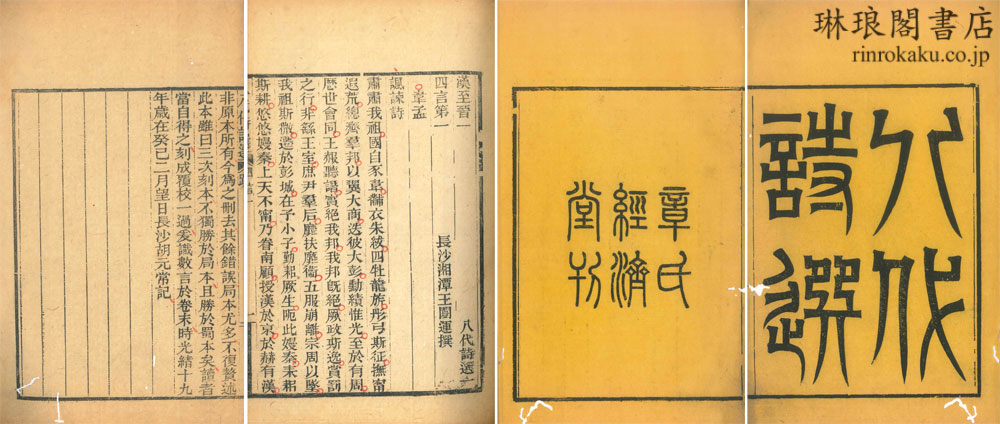 琳琅閣書店
rinrokaku.co.jp
八代
詩選
章氏
經濟
堂刊
漢至晉一　八代詩選一
四言第一　長沙湘潭王闓運撰
韋孟
諷諫詩
肅肅我祖國自豕韋黼衣朱紱四牡龍旂彤弓斯征撫甯
遐荒總齊羣邦以翼大商迭彼大彭勳績惟光至於有周
歷世會同王赧聽譖寔絕我邦我邦旣絕厥政斯逸賞罰
之行非繇王室庶尹羣后靡扶靡衞五服崩離宗周以墜
我祖斯微遷於彭城在予小子勤邪厥生阨此嫚秦耒耜
斯耕悠悠嫚秦上天不甯乃眷南顧授漢於京於赫有漢
非原本所有今爲之刪去其餘錯誤局本尤多不復贅述
此本雖曰三次刻本不獨勝於局本且勝於蜀本矣讀者
當自得之刻成覆校一過爰識數言於卷末時光緒十九
年歲在癸巳二月望日長沙胡元常記